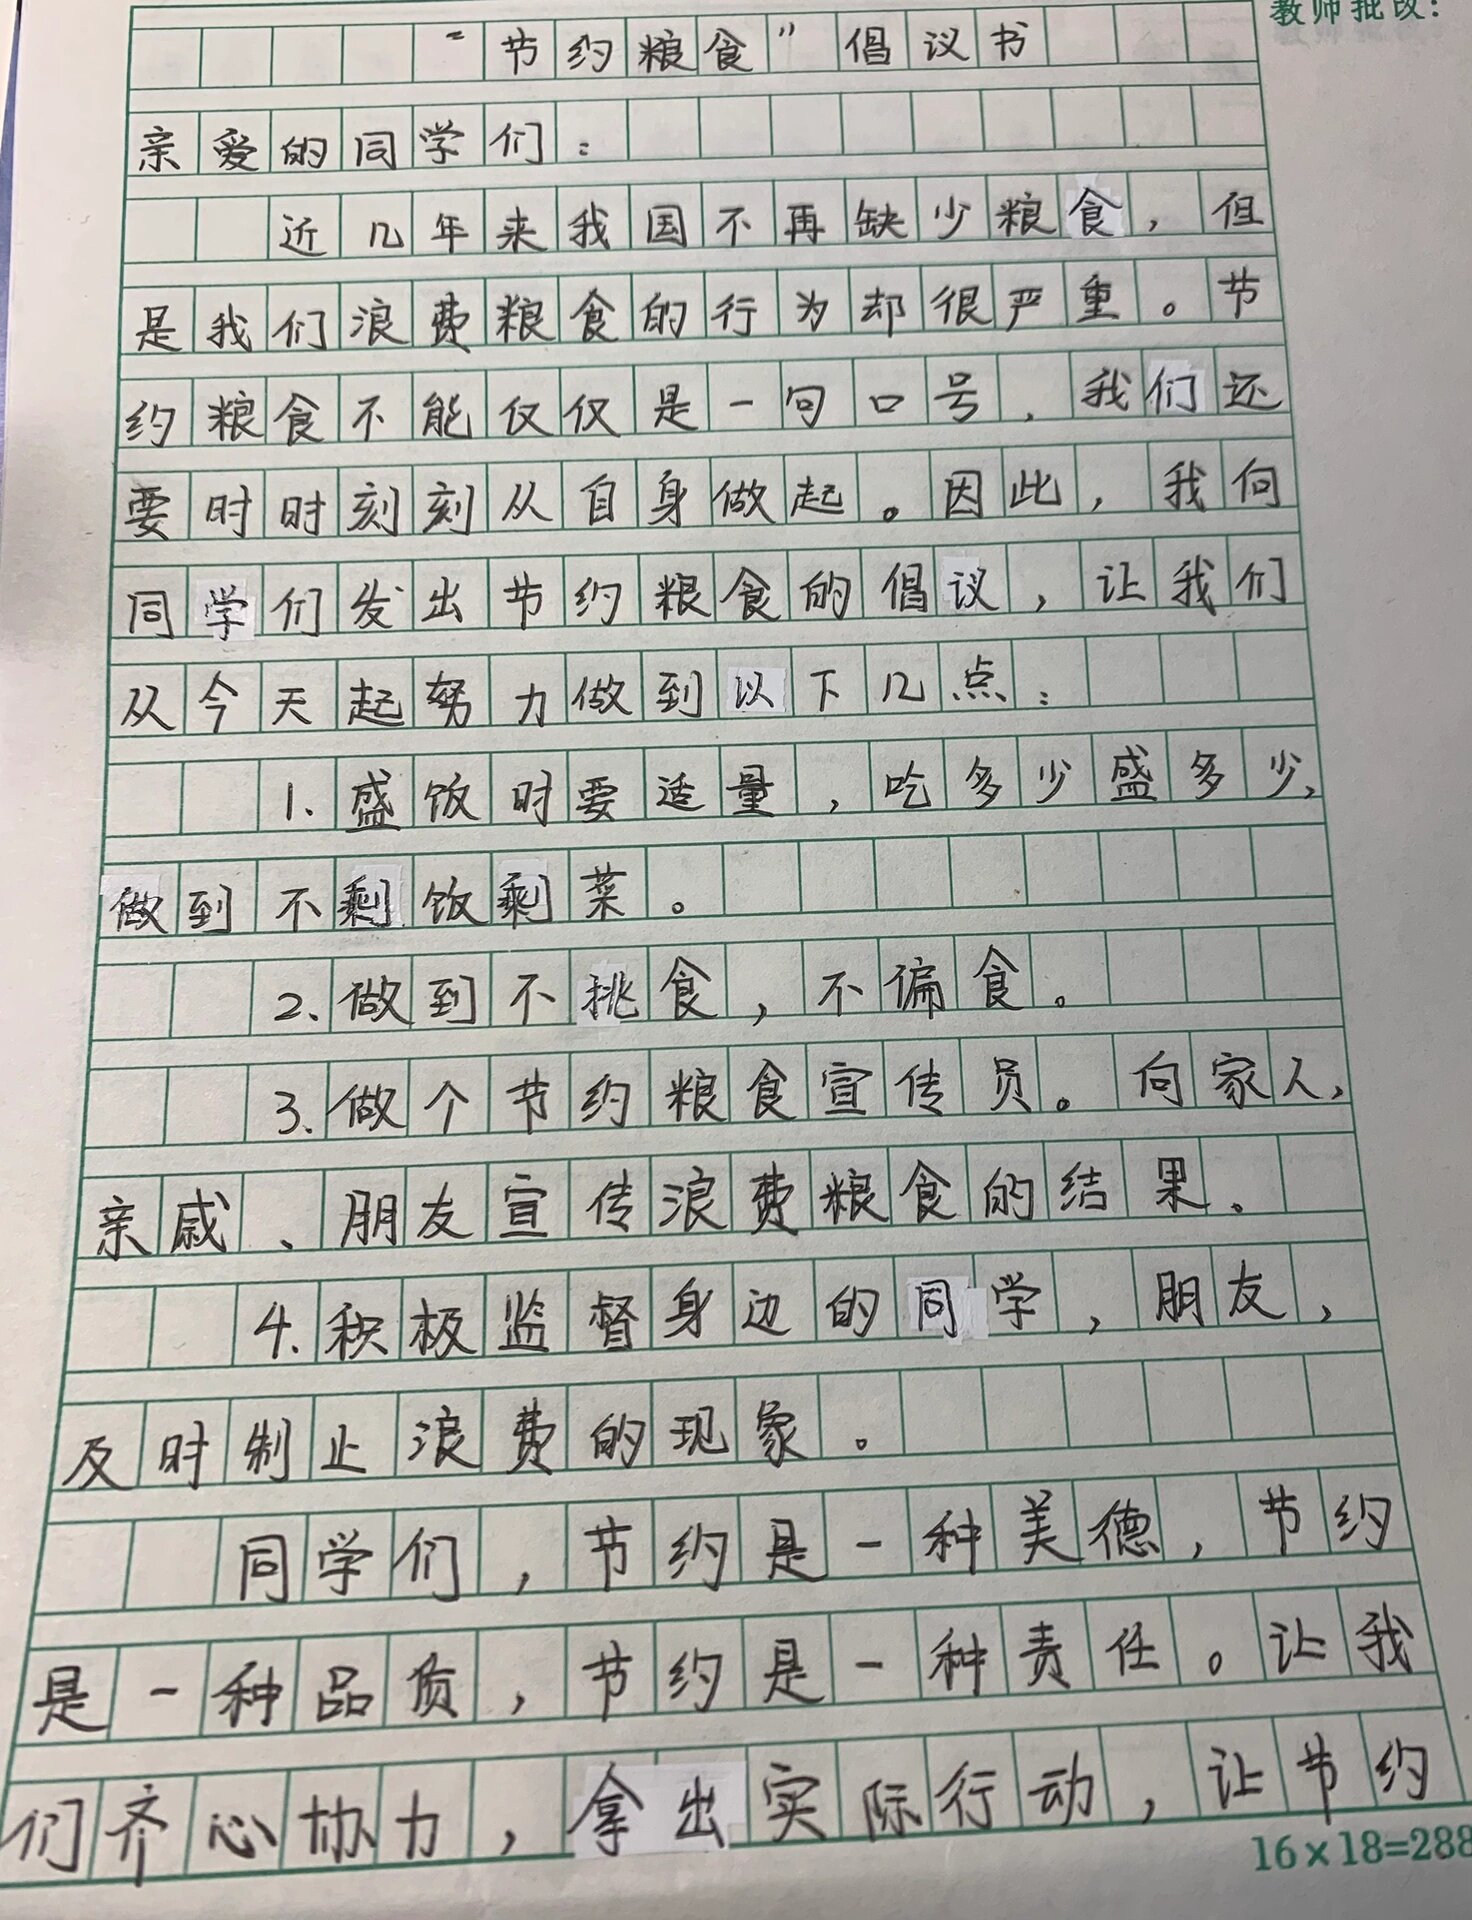 教师批改：
“节约粮食”倡议书
亲爱的同学们：
近几年来我国不再缺少粮食，但
是我们浪费粮食的行为却很严重。节
约粮食不能仅仅是一句口号，我们还
要时时刻刻从自身做起。因此，我向
同学们发出节约粮食的倡议，让我们
从今天起努力做到以下几点：
1.盛饭时要适量，吃多少盛多少，
做到不剩饭剩菜。
2、做到不挑食，不偏食。
3.做个节约粮食宣传员。向家人、
亲戚、朋友宣传浪费粮食的结果。
4.积极监督身边的同学，朋友，
及时制止浪费的现象。
同学们，节约是一种美德，节约
是一种品质，节约是一种责任。让我
们齐心协力，拿出实际行动，让节约
16×18=288